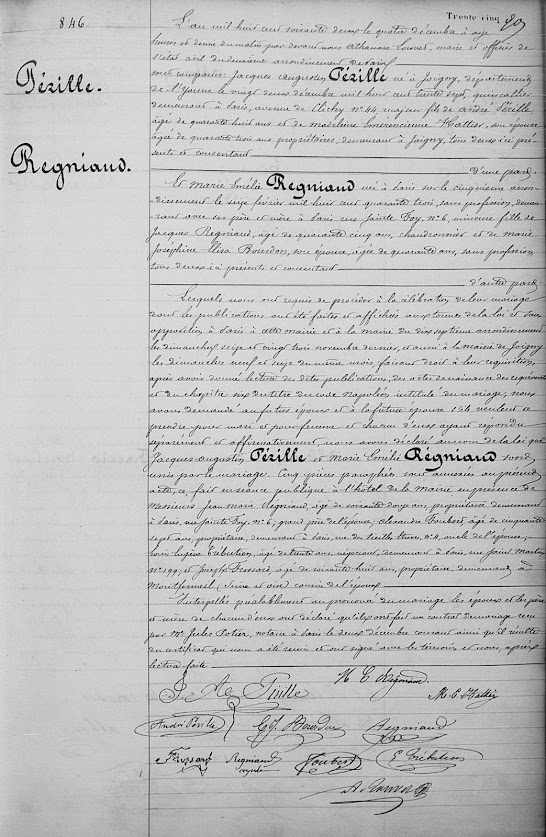 846.
Trente cinq
Pérille.
Regniaud.
L'an mil huit cent soixante deux le quatre décembre à onze
heures et demie du matin par devant nous Athanase Louvet, maire et officier de
l'état civil du deuxième arrondissement de Paris
sont comparus: Jacques Augustin Pérille né à Joigny, département
de l'Yonne le vingt deux décembre mil huit cent trente sept, quincaillier
demeurant à Paris, avenue de Clichy nº 44, majeur fils de André Pérille
âgé de quarante huit ans et de Madeleine Emérencienne Hattier, son épouse
âgée de quarante trois ans propriétaires, demeurant à Joigny, tous deux ici pré-
sents et consentant
D'une part.
Et Marie Emélie Regniaud née à Paris sur le cinquième arron-
dissement le seize février mil huit cent quarante trois, sans profession, demeu-
rant avec ses père et mère à Paris rue Sainte Foy, nº 6, mineure fille de
Jacques Regniaud, âgé de quarante cinq ans, chaudronnier et de Marie
Joséphine Elisa Bourdon, son épouse, âgée de quarante ans, sans profession
tous deux ici présents et consentant
d'autre part.
Lesquels nous ont requis de procéder à la célébration de leur mariage
dont les publications ont été faites et affichées aux termes de la loi et sans
opposition à Paris à cette mairie et à la mairie du dix septième arrondissement
les dimanches seize et vingt trois novembre dernier, et aussi à la mairie de Joigny
les dimanches neuf et seize du même mois, faisant droit à leur réquisition,
après avoir donné lecture des dites publications, des actes de naissance des requérants
et du chapitre six du titre du code Napoléon intitulé du mariage, nous
avons demandé au futur époux et à la future épouse s'ils veulent se
prendre pour mari et pour femme et chacun d'eux ayant répondu
séparément et affirmativement, nous avons déclaré au nom de la loi que
Jacques Augustin Pérille et Marie Emélie Régniaud sont
unis par le mariage. Cinq pièces paraphées sont annexées au présent
acte, ce fait en séance publique à l'hôtel de la mairie en présence de
Messieurs Jean Marie Regniaud, âgé de soixante douze ans, propriétaire demeurant
à Paris, rue Sainte Foy, nº 6, grand père de l'épouse, Alexandre Foubert âgé de cinquante
sept ans, propriétaire, demeurant à Paris, rue des nº 4, oncle de l'épouse,
Louis Eugène Trébutien, âgé de trente ans, négociant, demeurant à Paris, rue Saint Martin
nº 199, et Joseph Frossard, âgé de soixante huit ans, propriétaire, demeurant à
Montfermeil (Seine et Oise) cousin de l'époux
Interpellés préalablement au prononcé du mariage les époux et les père
et mère de chacun d'eux ont déclaré qu'ils ont fait un contrat de mariage reçu
par Mr Jules Potier, notaire à Paris le deux décembre courant ainsi qu'il résulte
du certificat qui nous a été remis et ont signé avec les témoins et nous, après
lecture faite
J. A. Pérille
M. E. Regniaud
M. E. Hattier
André Pérille
E. J. Bourdon
Regniaud
Frossard
Regniaud
Foubert
E Trébutien
A. Louvet